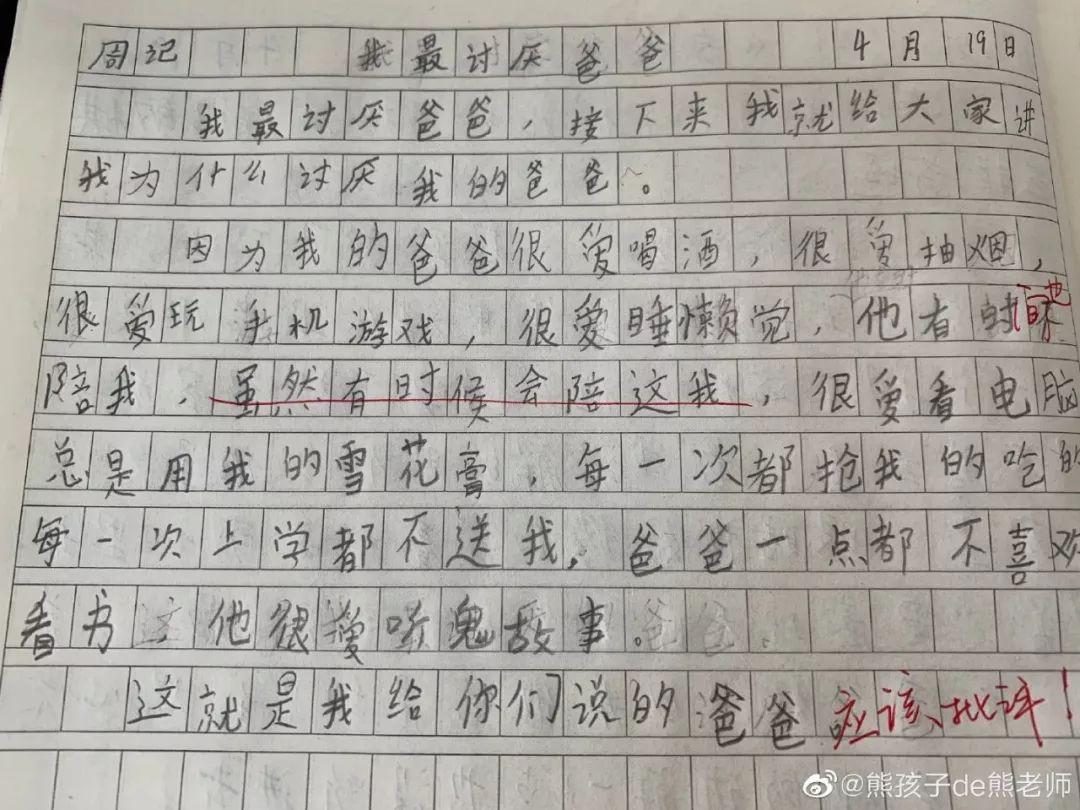 周记 我最讨厌爸爸 4月19日
我最讨厌爸爸，接下来我就给大家讲
我为什么讨厌我的爸爸。
因为我的爸爸很爱喝酒，很爱抽烟，
很爱玩手机游戏，很爱睡懒觉，他有时
陪我，虽然有时候会陪这我，很爱看电脑
总是用我的雪花膏，每一次都抢我的吃的
每一次上学都不送我，爸爸一点都不喜欢
看书，他很爱听鬼故事。
这就是我给你们说的爸爸 应该批评！
@熊孩子de熊老师